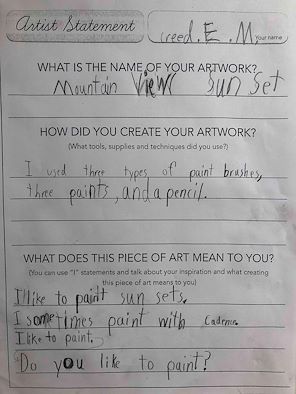 Artist Statement
Creed. E. M
your name
WHAT IS THE NAME OF YOUR ARTWORK?
Mountain View Sun Set
HOW DID YOU CREATE YOUR ARTWORK?
(What tools, supplies and techniques did you use?)
I used three types of paint brushes,
three paints, and a pencil.
WHAT DOES THIS PIECE OF ART MEAN TO YOU?
(You can use "I" statements and talk about your inspiration and what creating
this piece of art means to you)
I like to paint sun sets.
I sometimes paint with Cadence.
I like to paint.
Do you like to paint?